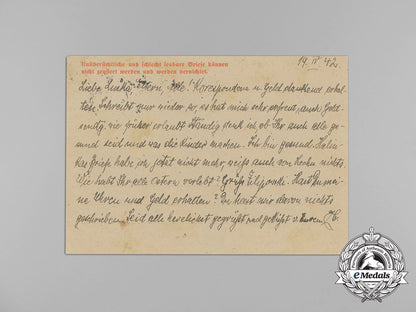 19. IV 42.
Unübersichtliche und schlecht lesbare Briefe können
nicht zensiert werden und werden vernichtet.
Liebe Eltern, Korespondenz u. Geld dankend erhal-
ten. Schreibt nur wieder so, es hat mich sehr gefreut, auch Geld-
wie früher erlaubt. Ständig denk ich, ob Ihr auch alle ge-
sund seid und was die Kinder machen. Ich bin gesund. Halin-
kas Briefe habe ich jetzt nicht mehr, weiss auch von nichts.
Wie habt Ihr alle ostern verlebt? Grüsse Filipowski. Hast Du mei-
ne Uhren und Geld erhalten? Du hast mir davon nichts
geschrieben. Seid alle herzlichst gegrüsst und geküsst v. Eurem
eMedals